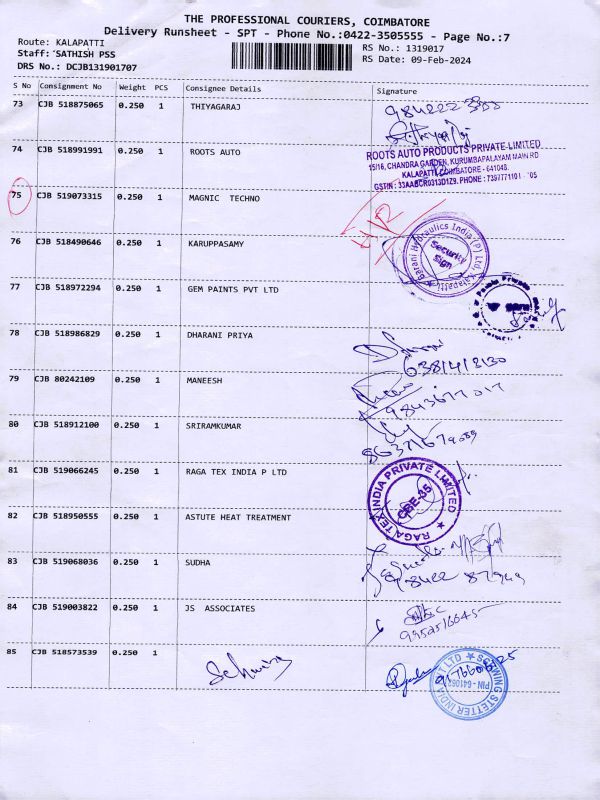 THE PROFESSIONAL COURIERS, COIMBATORE
Delivery Runsheet - SPT - Phone No.:0422-3505555 - Page No.:7
Route: KALAPATTI
Staff: SATHISH PSS
DRS No.: DCJB131901707
RS No.: 1319017
RS Date: 09-Feb-2024
S No Consignment No Weight PCS Consignee Details Signature
73 CJB 518875065 0.250 1 THIYAGARAJ
74 CJB 518991991 0.250 1 ROOTS AUTO
ROOTS AUTO PRODUCTS PRIVATE LIMITED
15/16, CHANDRA GARDEN, KURUMBAPALAYAM MAIN RD
KALAPATTI, COIMBATORE - 641048.
GSTIN : 33AABCR0313D1Z9. PHONE : 7397771101 - 05
75 CJB 519073315 0.250 1 MAGNIC TECHNO
76 CJB 518490646 0.250 1 KARUPPASAMY
Sarani Hydraulics India (P) Ltd, Kalapatti
Security
Sign
77 CJB 518972294 0.250 1 GEM PAINTS PVT LTD
78 CJB 518986829 0.250 1 DHARANI PRIYA
79 CJB 80242109 0.250 1 MANEESH
80 CJB 518912100 0.250 1 SRIRAMKUMAR
81 CJB 519066245 0.250 1 RAGA TEX INDIA P LTD
RAGA TEX INDIA PRIVATE LIMITED
CBE-35
82 CJB 518950555 0.250 1 ASTUTE HEAT TREATMENT
83 CJB 519068036 0.250 1 SUDHA
84 CJB 519003822 0.250 1 JS ASSOCIATES
9952516645
85 CJB 518573539 0.250 1